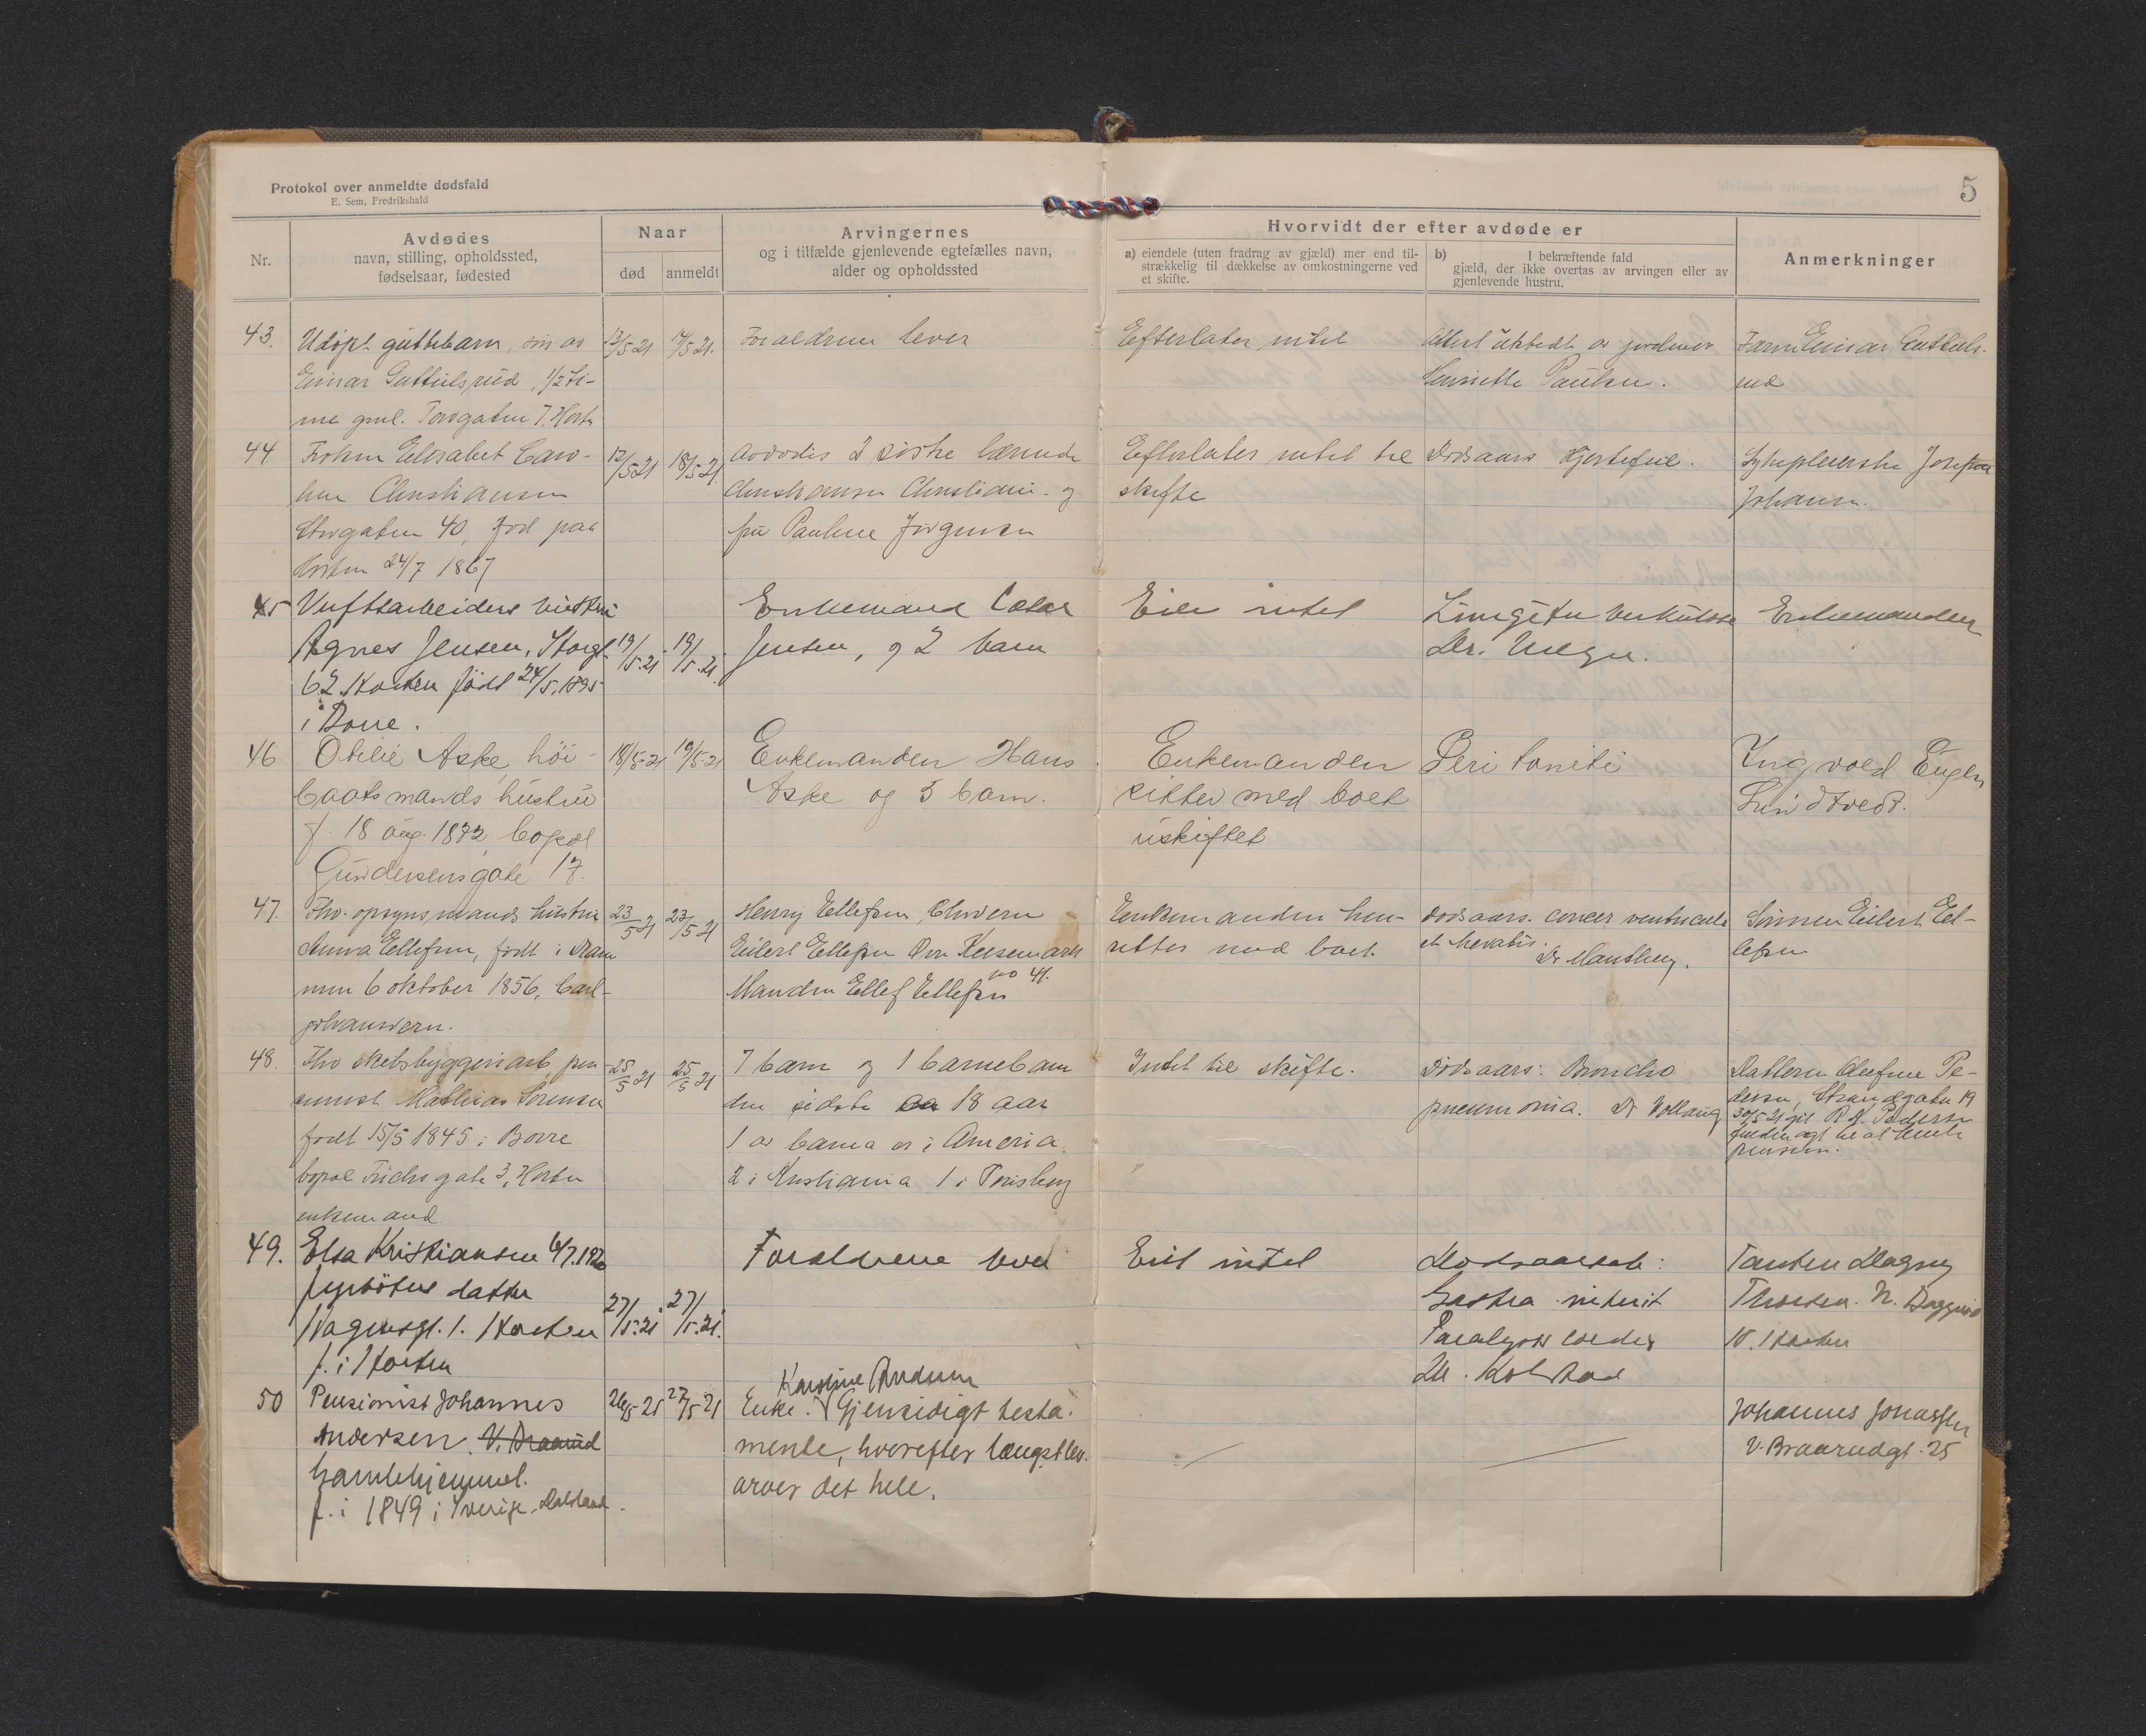 Protokol over anmeldte dødsfald
E. Sem, Fredrikshald
5
Nr.
Avdødes
navn, stilling, opholdssted,
fødselsaar, fødested
Naar
død
anmeldt
Arvingernes
og i tilfælde gjenlevende egtefælles navn,
alder og opholdssted
Hvorvidt der efter avdøde er
a) eiendele (uten fradrag av gjæld) mer end til-
strækkelig til dækkelse av omkostningerne ved
et skifte.
b) I bekræftende fald
gjæld, der ikke overtas av arvingen eller av
gjenlevende hustru.
Anmerkninger
43.
Udøpt guttebarn, søn av
Einar Guttulsrud, 1/2 ti-
me gml. Torvgaten 7, Horten
13/5 21
17/5 21.
Forældrene lever
Efterlater intet
Attest utstedt av jordmor
Henriette Paulsen.
Faren Einar Guttuls-
rud
44
Frøken Elisabet Caro-
line Christiansen
Storgaten 40, født paa
Horten 24/7 1867
12/5 21
18/5 21.
Avdødes 2 søstre
Christiansen Christiania og
fru Pauline Jørgensen
Efterlater intet til
skifte
Dødsaars Hjertefeil.
Sykepleierske Josefine
Johansen.
45
Verftsarbeiders hustru
Agnes Jensen, Storgt.
62 Horten født 24/5.1895
i Borre.
19/5.21
19/5.21.
Enkemand Oskar
Jensen, og 2 barn
Eier intet
Lungetuberkulose
Dr.
Enkemanden
46
Otilie Aske, høi-
baatsmands hustru
f. 18 aug. 1872, bopæl
Gundersensgate 17.
18/5-21
19/5-21
Enkemanden Hans
Aske og 3 barn.
Enkemanden
sitter med boet
uskiftet
Peritoniti
Ingvald Eugen
Lindtvedt.
47.
Fhv. opsynsmands hustru
Anna Ellefsen, født i Dram
men 6 oktober 1856, Carl-
johansvern.
23/5 21
23/5 21
Henry Ellefsen,
Eilert Ellefsen
no 41.
Manden Ellef Ellefsen
Enkemanden hen-
sitter med boet.
Dødsaars. cancer ventriculi
et hepatis.
Dr
Sønnen Eilert El-
lefsen
48.
Fhv skibsbyggeriarb. pen
sionist Mathias Sørensen
født 15/5 1845 i Borre
bopæl Friches gate 3, Horten
enkemand
25/5 21
25/5 21
7 barn og 1 barnebarn
den sidste 18 aar
1 av barna er i America
2 i Kristiania 1 i Tønsberg
Intet til skifte.
Dødsaars: Broncho
pneumonia. Dr
Datteren Olefine Pe-
dersen, Strandgaten 19
30/5 21 git R. A. Pedersen
fuldmagt til at hente
pension.
49.
Elsa Kristiansen 6/7.1920
fyrbøters datter
Vognsgt. 1. Horten
f. i Horten
27/5.21
27/5.21.
Forældrene lever
Eier intet
Dødsaarsak:
Gastro enterit
Paralysis cordis
Dr. Kolstad
Tanten Dagny
Thorsen. N.
10. Horten
50
Pensionist Johannes
Andersen. V. Braarud
Gamlehjemmet.
f. i 1849 i Sverige. Dalsland.
26/5-21
27/5 21
Karoline Andersen
Enke. Gjensidigt testa-
mente, hvorefter længstlev.
arver det hele.
Johannes Jonassen
V. Braarudgt. 25